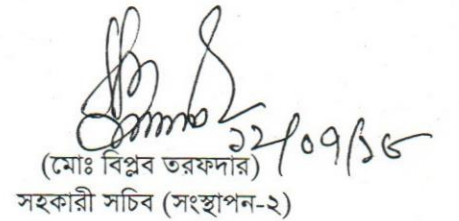 ১২/০৭/১৮
(মোঃ বিপ্লব তরফদার)
সহকারী সচিব (সংস্থাপন-২)